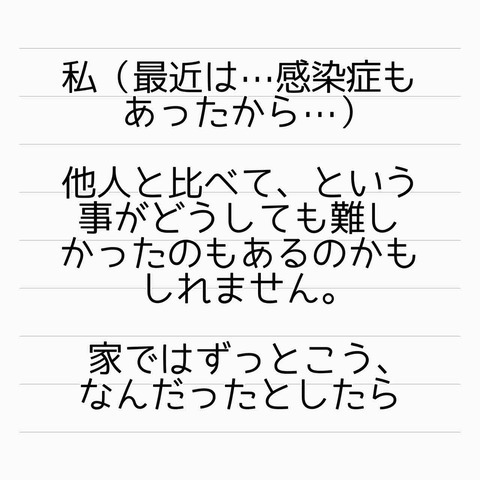 私（最近は…感染症も
あったから…）
他人と比べて、という
事がどうしても難し
かったのもあるのかも
しれません。
家ではずっとこう、
なんだったとしたら